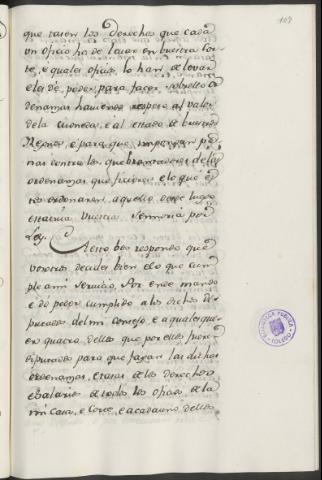 107
que tasen los derechos que cada
un oficio ha de levar en buestra Cor-
te, e quales oficios lo han de levar
e les dé poder para facer sobrello or-
denanzas haviendo respeto al valor
de la moneda, e al estado de buestros
Regnos, e para que impongan pe-
nas contra los quebrantadores de las
ordenanzas que ficieren e lo que es-
tos ordenaren, aquello desde luego
establezca vuestra Sennoria por
Ley.
A esto bos respondo que
vosotros decides bien e lo que cum-
ple a mi servicio. Por ende mando
e dó poder cumplido a los dichos di-
putados del mi consejo, e a qualesquier
quatro dellos que por ellos fueren
diputados para que fagan las dichas
ordenanzas, e tasas de los derechos
e salarios de todos los oficios de la
mi Casa, e Corte, e a cada uno dellos
BIBLIOTECA PUBLICA
TOLEDO